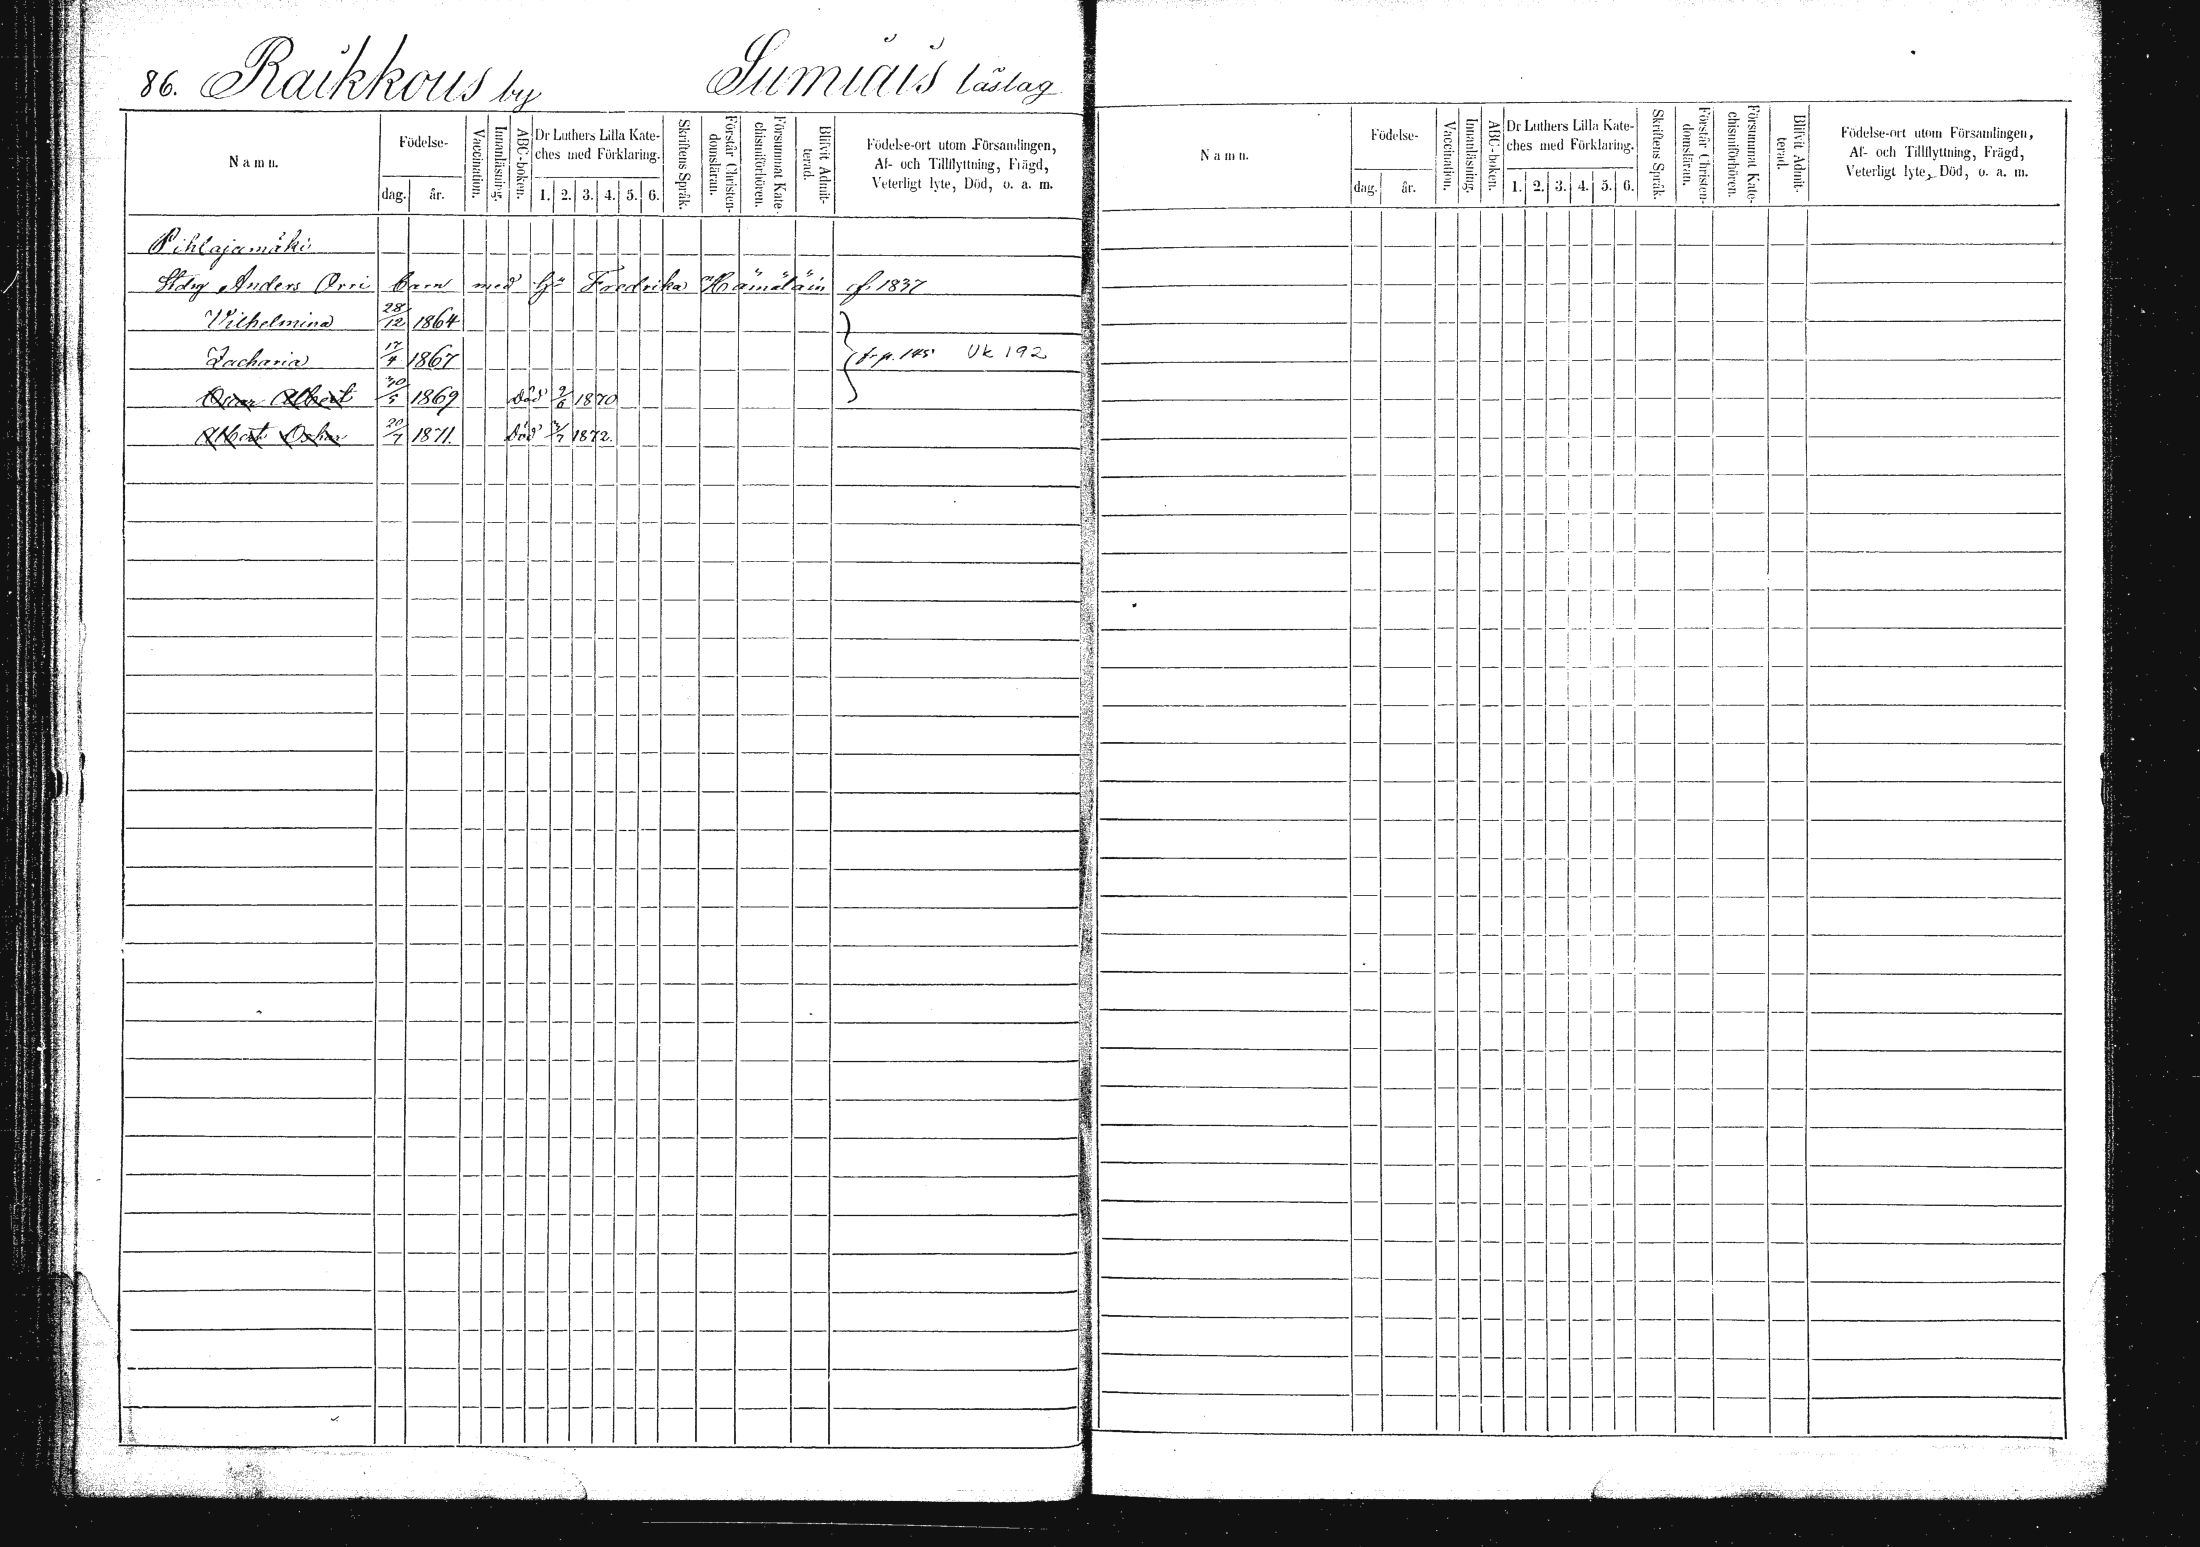 86. Raikkous by Sumiais läslag
Namn.
Födelse-
dag. år.
Vaccination.
Innanläsning.
ABC-boken.
Dr Luthers Lilla Kate-
ches med Förklaring.
1. 2. 3. 4. 5. 6.
Skriftens Språk.
Förstår Christen-
domsläran.
Försummat Kate-
chismiförhören.
Blifvit Admit-
terad.
Födelse-ort utom Församlingen,
Af- och Tillflyttning, Frägd,
Veterligt lyte, Död, o. a. m.
Pihlajamäki
Anders Orri barn med Fredrika Hämäläin f. 1837
Vilhelmina 28/12 1864
Zacharia 17/4 1867 fr p. 145 Uk 192
Oscar Albert 1869 Död 9/6 1870
Albert Oskar 20/7 1871. Död 1872.
Namn.
Födelse-
dag. år.
Vaccination.
Innanläsning.
ABC-boken.
Dr Luthers Lilla Kate-
ches med Förklaring.
1. 2. 3. 4. 5. 6.
Skriftens Språk.
Förstår Christen-
domsläran.
Försummat Kate-
chismiförhören.
Blifvit Admit-
terad.
Födelse-ort utom Församlingen,
Af- och Tillflyttning, Frägd,
Veterligt lyte, Död, o. a. m.